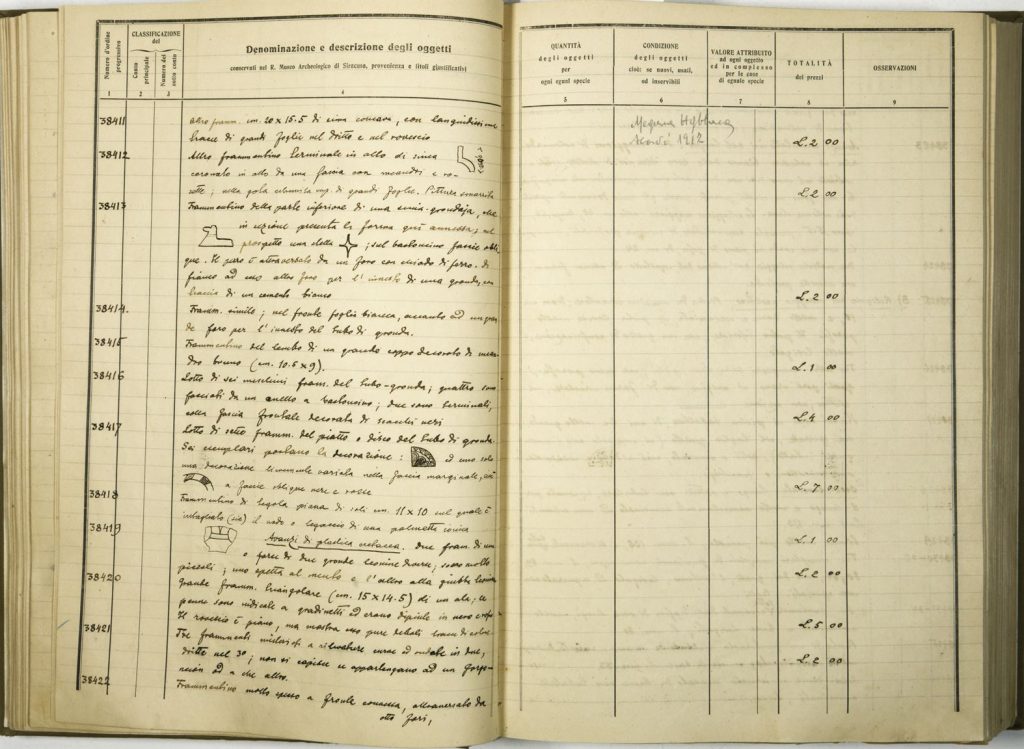 Numero d'ordine progressivo
CLASSIFICAZIONE
del
Conto principale
Numero del sotto conto
Denominazione e descrizione degli oggetti
conservati nel R. Museo Archeologico di Siracusa, provenienza e titoli giustificativi
1 2 3 4
38411 Altro framm. cm. 20 x 15.5 di sima concava, con languidissime
tracce di grandi foglie nel dritto e nel rovescio
38412 Altro frammentino terminale in alto di sima
coronato in alto da una fascia con meandri e ro-
sette; nella gola di grandi foglie. Pittura smarrita
38413 Frammentino della parte inferiore di una sima-grondaja, che
in sezione presenta la forma qui annessa; nel
prospetto una stella ; sul bastoncino fascie obli
que. Il pezzo è attraversato da un foro con chiodo di ferro. di
fianco ad esso altro foro per l'innesto di una gronda, con
traccia di un cemento bianco
38414. Framm. simile; nel fronte foglia bianca, accanto ad un gran
de foro per l'innesto del tubo di gronda.
38415 Frammentino del lembo di un grande coppo decorato di mean
dro bruno (cm. 10.5 x 9).
38416 Lotto di sei meschini fram. del tubo-gronda; quattro sono
fasciati da un anello a bastoncino; due sono terminali,
colla fascia frontale decorata di scacchi neri
38417 Lotto di sette framm. del piatto o disco del tubo di gronda.
Sei esemplari portano la decorazione: ed uno solo
una decorazione lievemente variata nella fascia marginale, cioè
a fascie oblique nere e rosse
38418 Frammentino di tegola piana di soli cm. 11 x 10 sul quale è
intagliato (sic) il nodo o legaccio di una palmetta ionica
38419 Avanzi di plastica cretacea. Due fram. di una
o forse di due grandi leonine diverse; sono molto
piccoli; uno spetta al mento e l'altro alla giubba leonina
38420 Grande framm. triangolare (cm. 15 x 14.5) di un ala; le
penne sono ridicale a gradinetti ed erano dipinte in nero e rosso
Il rovescio è piano, ma mostra esso pure deboli tracce di colore
38421 Tre frammenti a rilevature curve ed ondate in due,
dritte nel 3º; non si capisce se appartengano ad un Gorgo-
neion od a che altro.
38422 Frammentino molto spesso a fronte convessa, attraversato da
otto fori,
QUANTITÀ
degli oggetti
per
ogni egual specie
CONDIZIONE
degli oggetti
cioè: se nuovi, usati,
od inservibili
VALORE ATTRIBUITO
ad ogni oggetto
ed in complesso
per le cose
di eguale specie
TOTALITÀ
dei prezzi
OSSERVAZIONI
5 6 7 8 9
Megara Hyblaea
1912
L. 2 00
L. 2 00
L. 2 00
L. 1 00
L. 4 00
L. 7 00
L. 1 00
L. 2 00
L. 5 00
L. 2 00